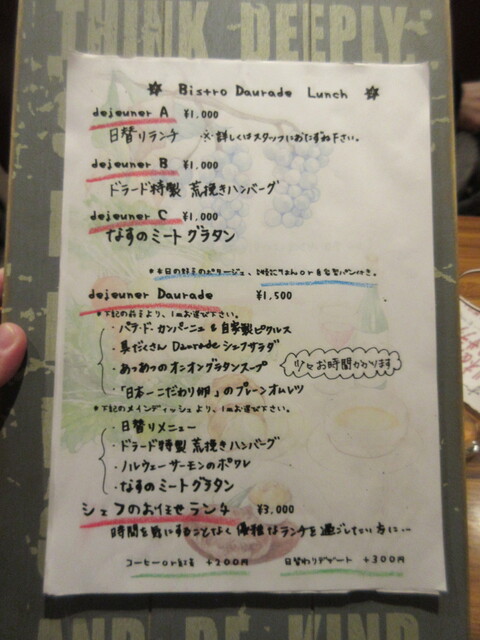 THINK DEEPLY,
✡ Bistro Daurade Lunch ✡
dejeuner A ¥1,000
日替りランチ ※詳しくはスタッフにおたずね下さい。
dejeuner B ¥1,000
ドラード特製 荒挽きハンバーグ
dejeuner C ¥1,000
なすのミートグラタン
*本日の野菜のポタージュ、ごはん or 自家製パン付き。
dejeuner Daurade ¥1,500
*下記の前菜より、1皿お選び下さい。
・パテ・ド・カンパーニュ & 自家製ピクルス
・具だくさん Daurade シェフサラダ
・あっつあつオニオングラタンスープ 少々お時間かかります
・「日本一こだわり卵」のプレーンオムレツ
*下記のメインディッシュより、1皿お選び下さい。
・日替りメニュー
・ドラード特製 荒挽きハンバーグ
・ノルウェーサーモンのポワレ
・なすのミートグラタン
シェフのお任せランチ ¥3,000
時間を気にすることなく優雅なランチを過ごしたい方に…
コーヒー or 紅茶 +200円 日替わりデザート +300円
AND BE KIND